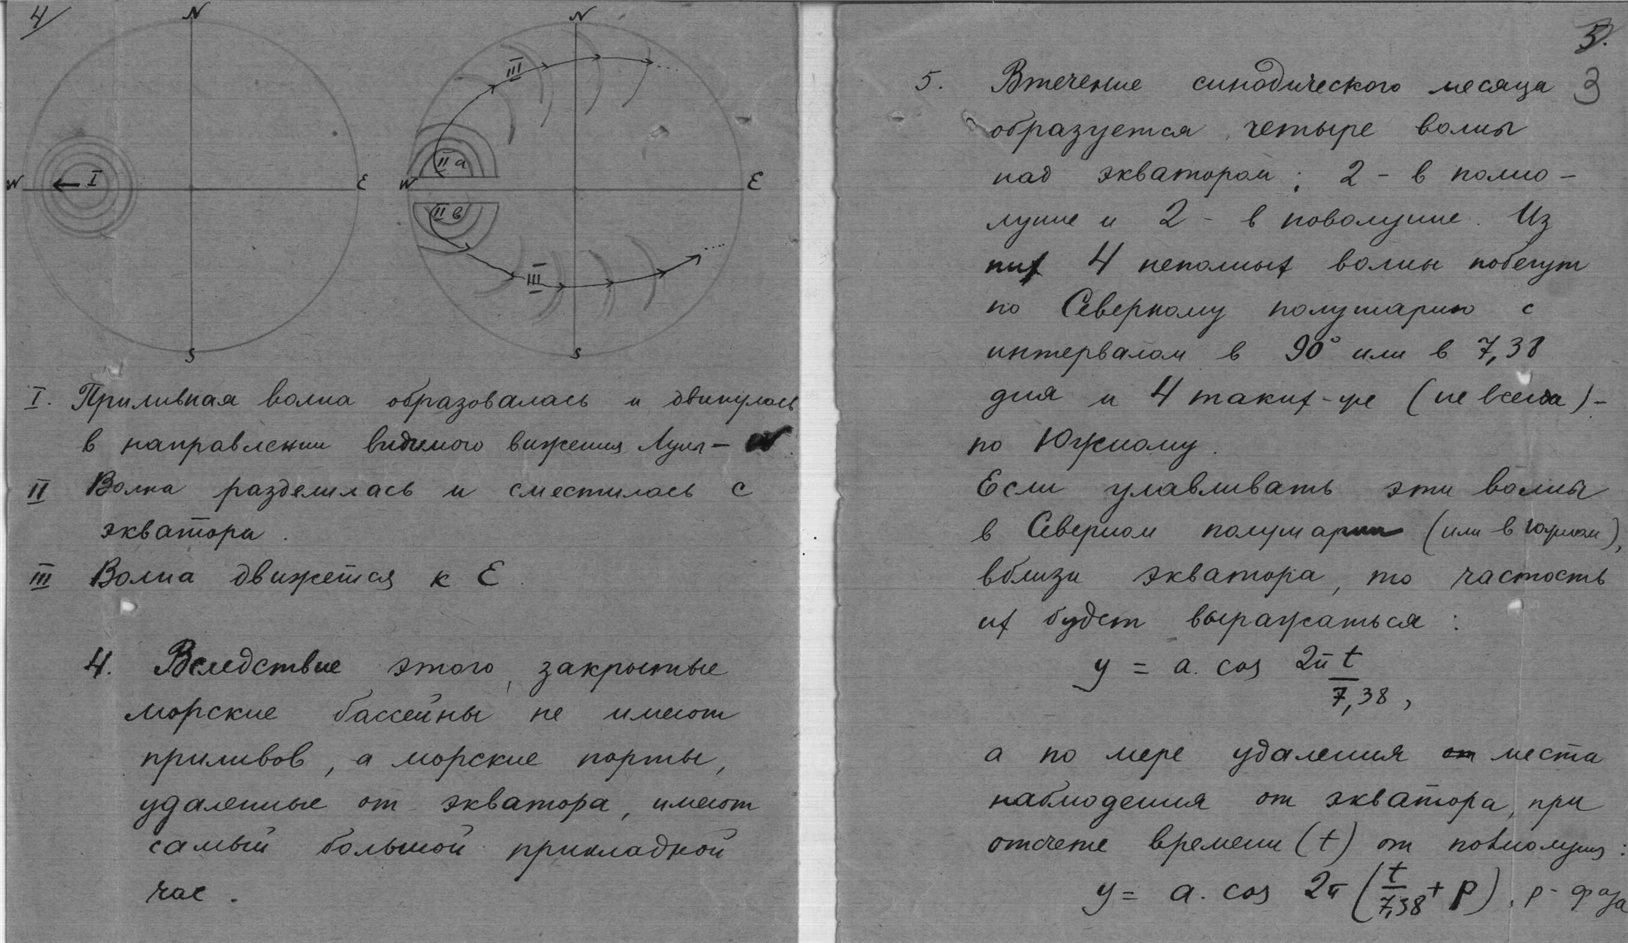 4
N
W
I
E
S
N
III
II а
W
E
II в
III
S
I. Приливная волна образовалась и двинулась
в направлении видимого вижения Луны – W
II Волна разделилась и сместилась с
экватора.
III Волна движется к E.
4. Вследствие этого, закрытые
морские бассейны не имеют
приливов, а морские порты,
удаленные от экватора, имеют
самый большой прикладной
час.
5.
3
5. Втечение синодического месяца
образуется четыре волны
над экватором; 2 – в полно-
луние и 2 – в новолуние. Из
них 4 неполных волны побегут
по Северному полушарию с
интервалом в 90° или в 7,38
дня и 4 таких-же (не всегда) –
по Южному.
Если улавливать эти волны
в Северном полушарии (или в Южном),
вблизи экватора, то частость
их будет выражаться:
y = a. cos 2π t/7,38,
а по мере удаления от места
наблюдения от экватора, при
отсчете времени (t) от новолуния:
y = a. cos 2π (t/7,38 + p), p - фаза